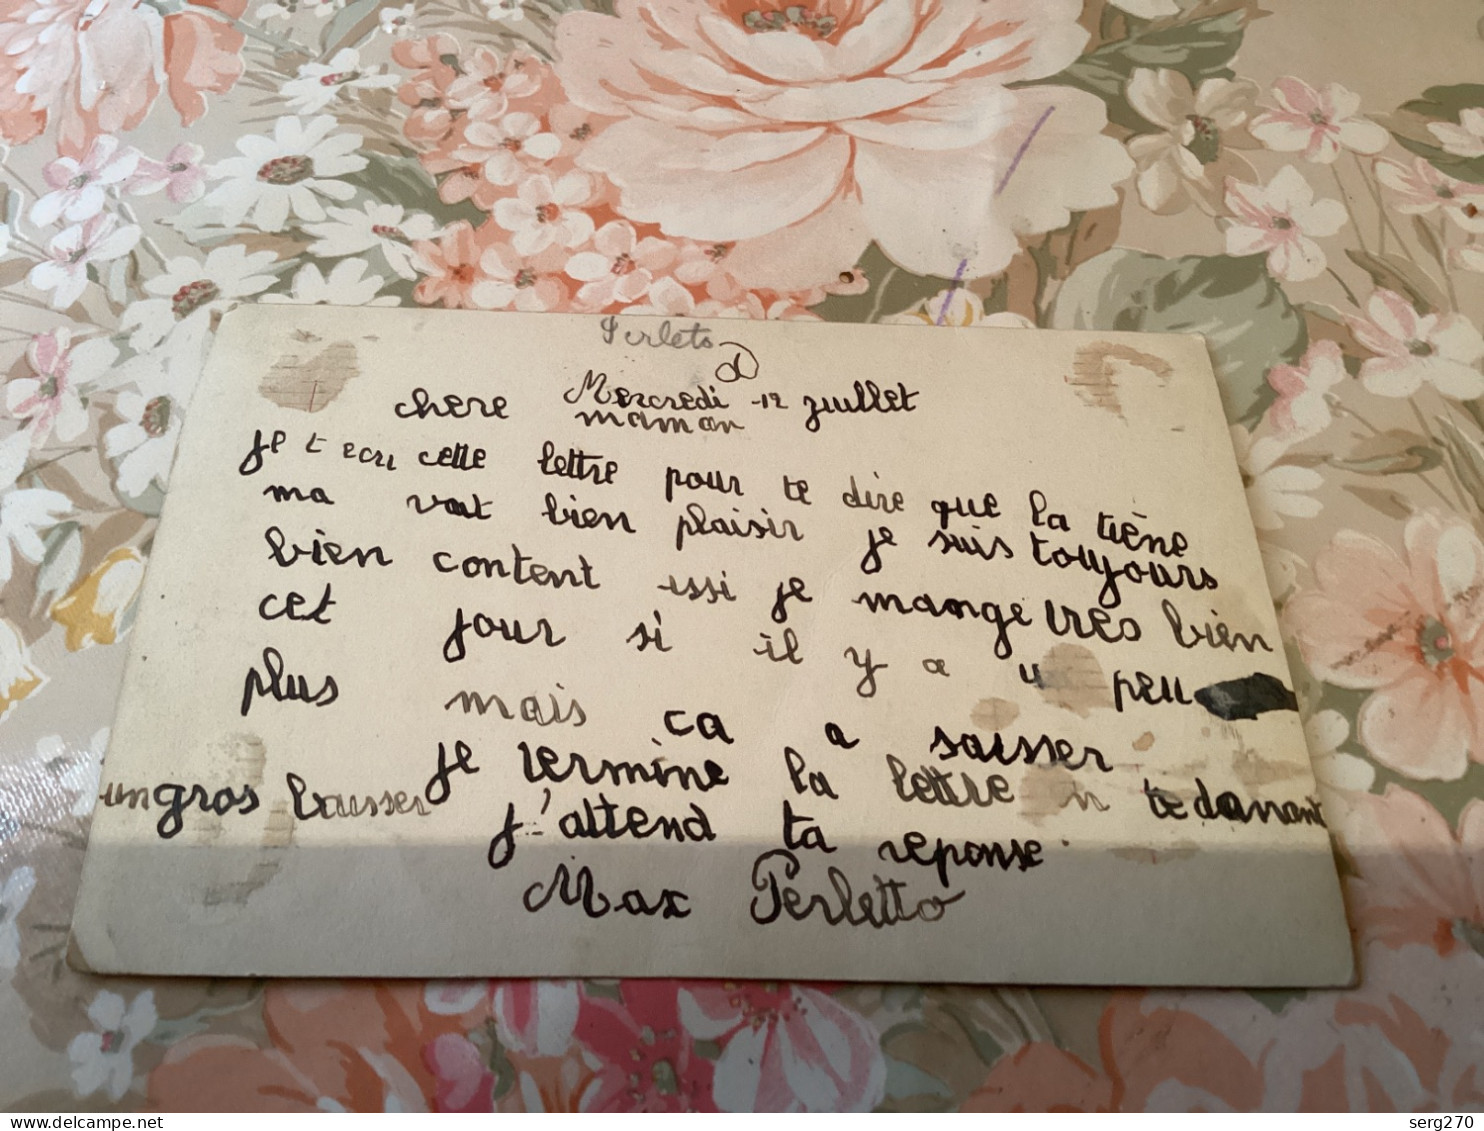 Perleto
Mercredi 12 juillet
chere maman
je t ecri cette lettre pour te dire que la tiène
ma vat bien plaisir je suis toujours
bien content issi je mange tres bien
cet jour si il y a u peu
plus mais ca a saisser
je termine la lettre n te donnant
un gros baisser
j'attend ta reponse
Max Perletto
delcampe.net
serg270